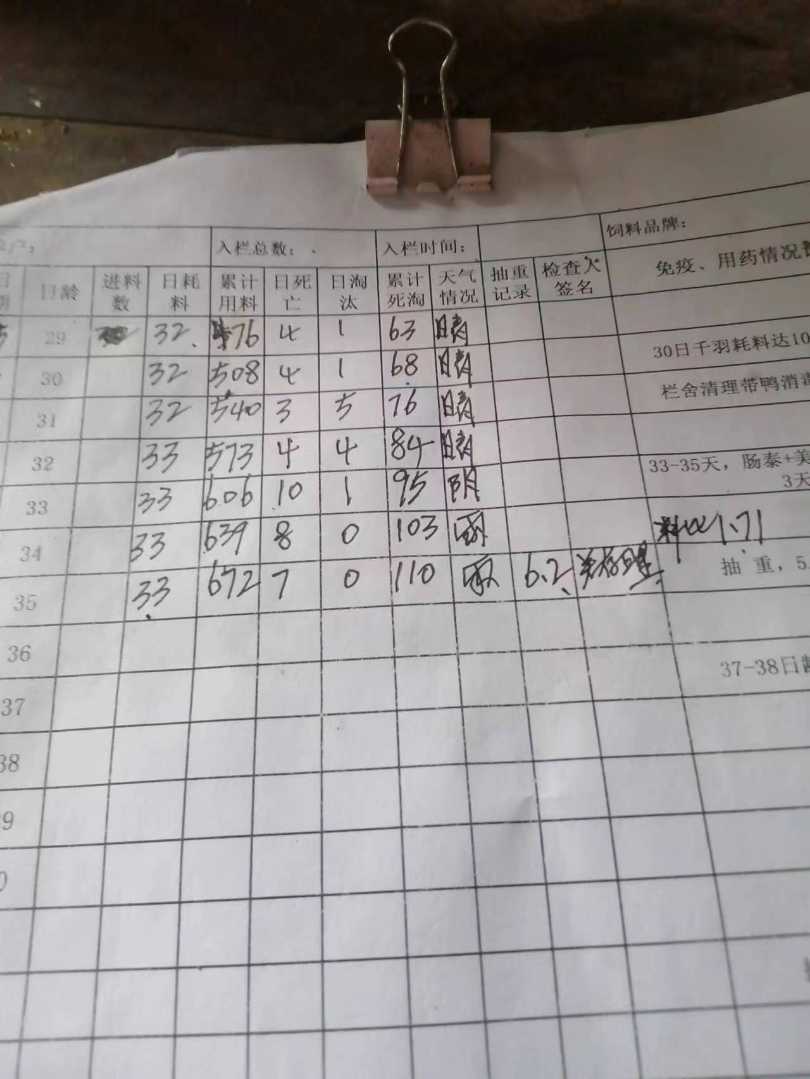 入栏总数： 入栏时间： 饲料品牌：
日龄 进料数 日耗料 累计用料 日死亡 日淘汰 累计死淘 天气情况 抽重记录 检查人签名 免疫、用药情况
29 32 476 4 1 63 晴
30 32 508 4 1 68 晴 30日千羽耗料达10
31 32 540 3 5 76 晴 栏舍清理带鸭消毒
32 33 573 4 4 84 晴
33 33 606 10 1 95 阴 33-35天，肠泰+美
3天
34 33 639 8 0 103 料比1.71
35 33 672 7 0 110 6.2 抽重，5.
36
37 37-38日龄
38